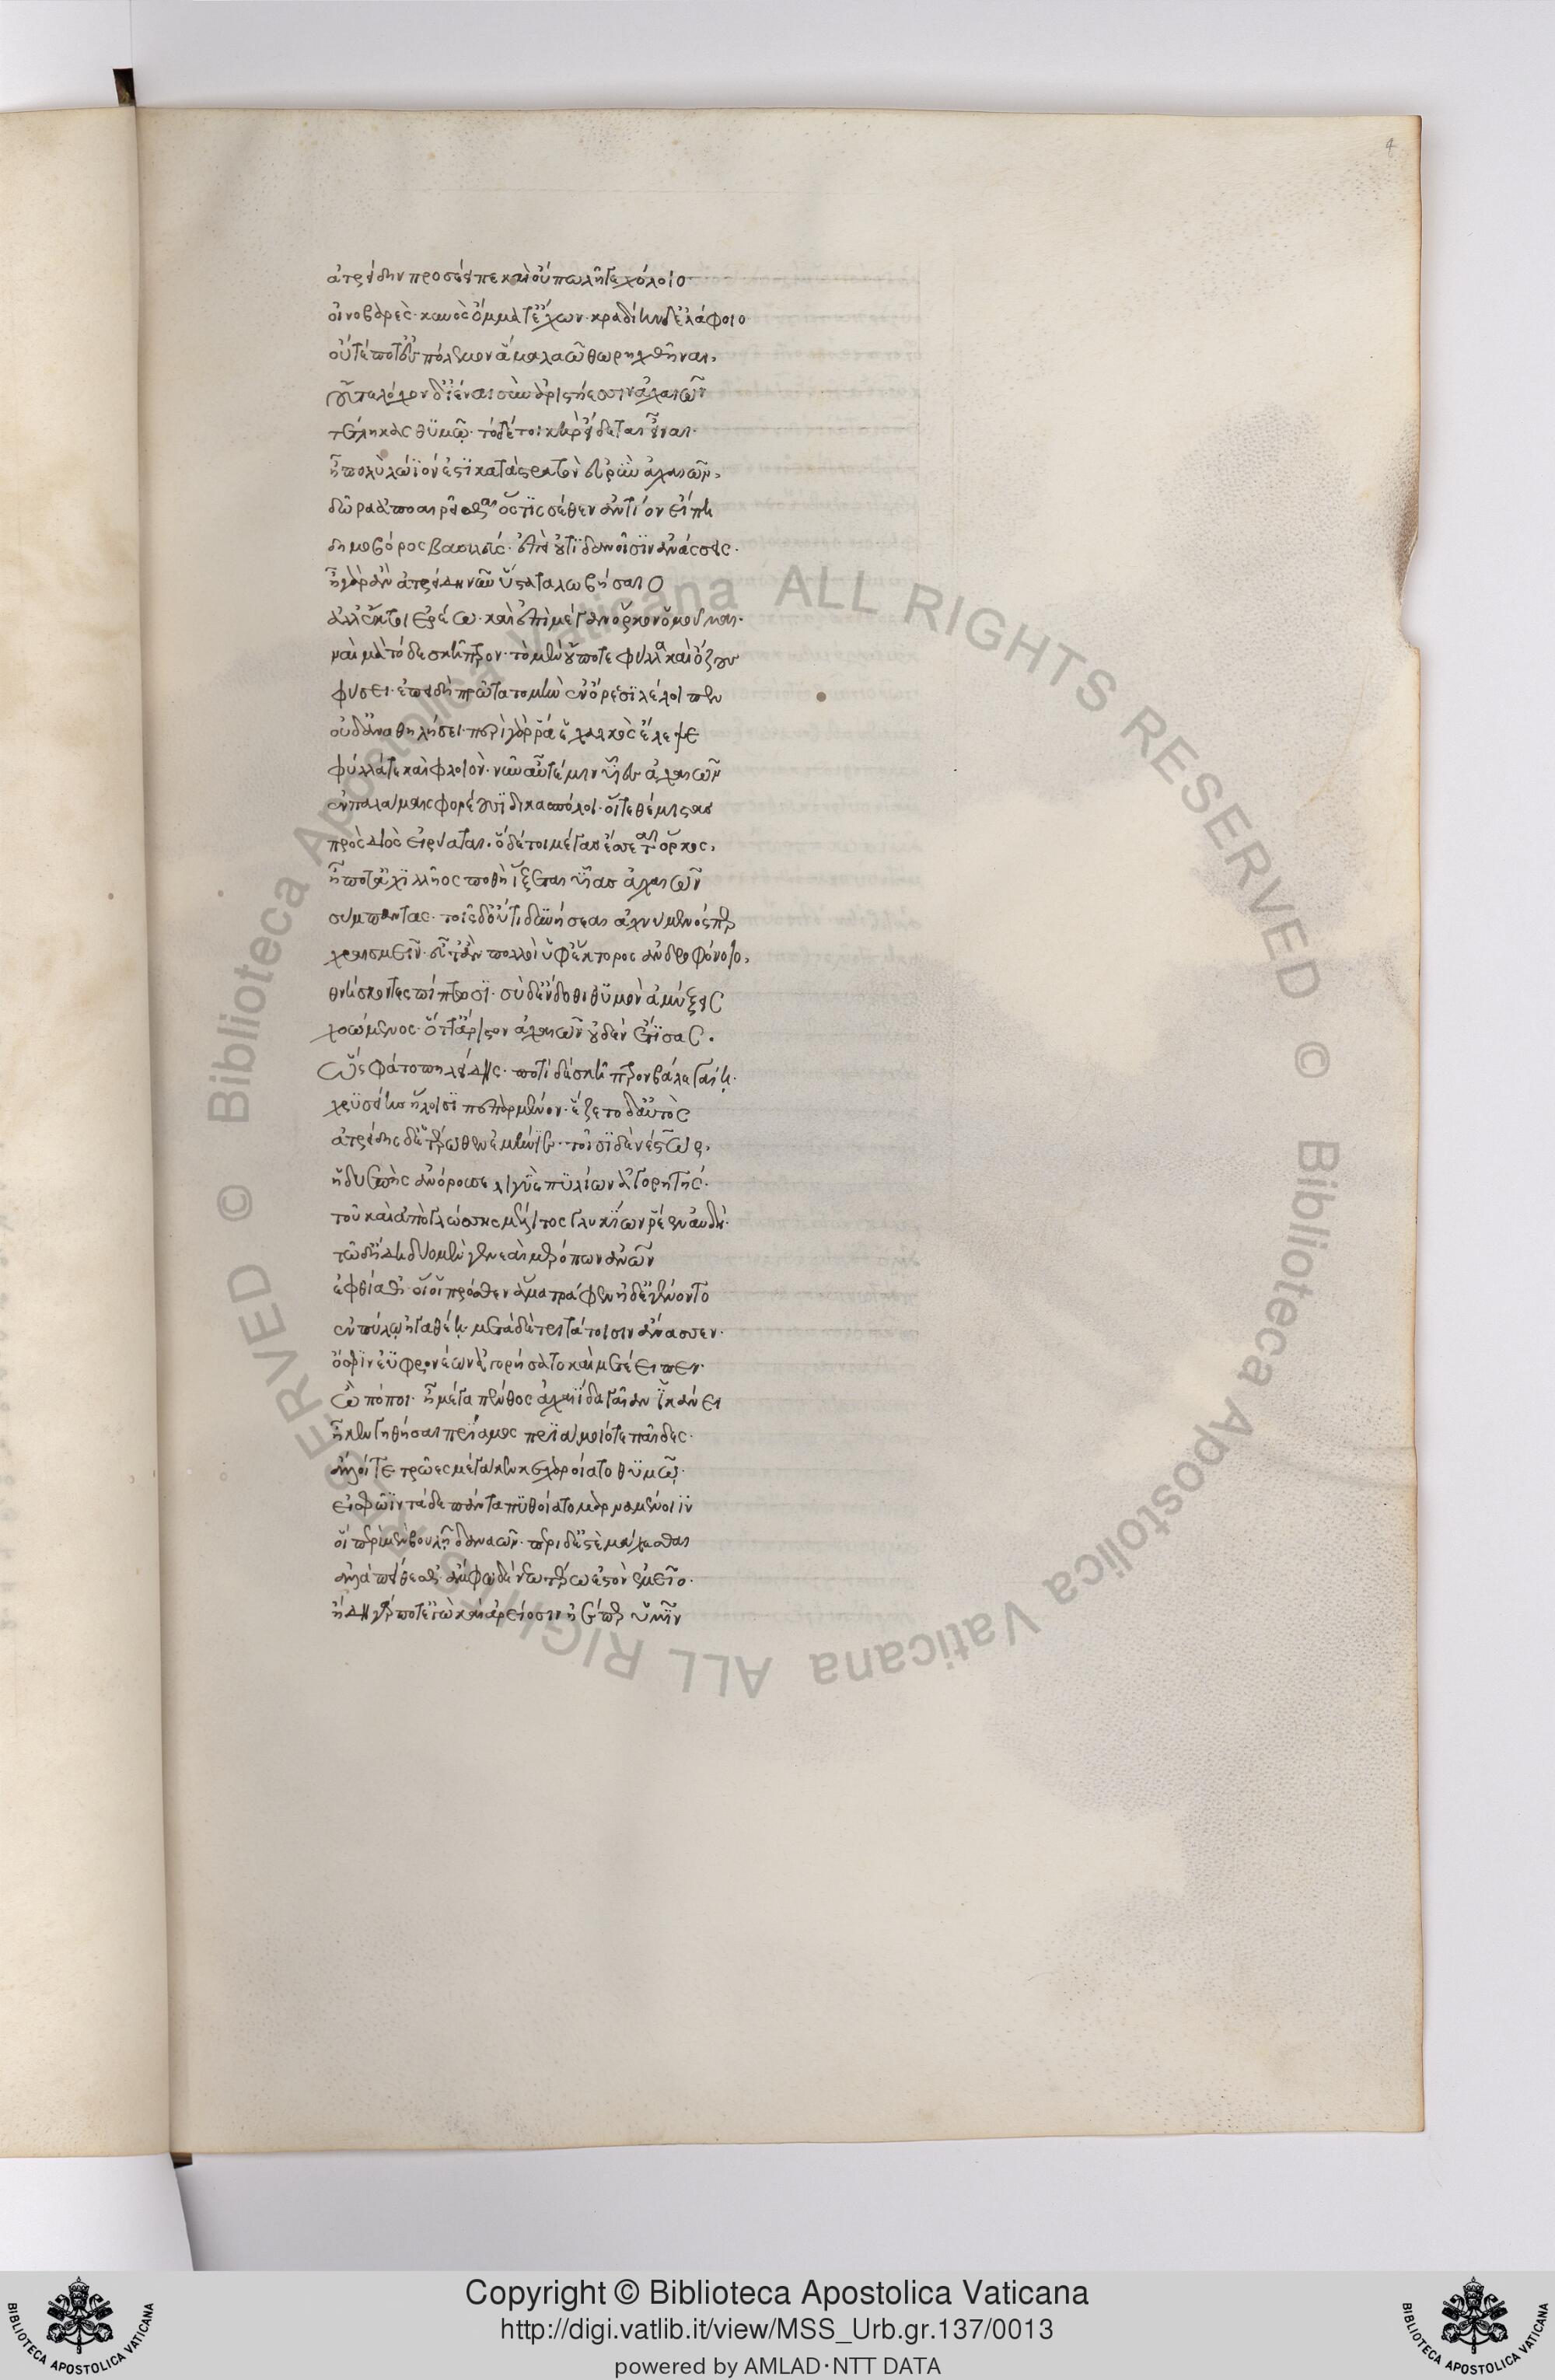 4
ἀτρείδην προσέειπε καὶ οὔπω λῆγε χόλοιο·
οἰνοβαρὲς· κυνὸς ὄμματ' ἔχων· κραδίην δ' ἐλάφοιο
οὔτέ ποτ' ἐς πόλεμον ἅμα λαῶ θωρηχθῆναι,
οὔτε λόχον δ' ἰέναι σὺν ἀριστήεσσιν ἀχαιῶν
τέτληκας θυμῶ· τὸ δέ τοι κὴρ εἴδεται εἶναι·
ἦ πολὺ λώϊόν ἐστι κατὰ στρατὸν εὐρὺν ἀχαιῶν,
δῶρ' ἀποαιρεῖσθαι ὅστις σέθεν ἀντίον εἴπη
δημοβόρος βασιλεύς· ἐπεὶ οὐτιδανοῖσιν ἀνάσσεις·
ἦ γὰρ ἂν ἀτρείδη νῦν ὕστατα λωβήσαιο
ἀλλ' ἔκ τοι ἐρέω· καὶ ἐπὶ μέγαν ὅρκον ὀμοῦμαι·
ναὶ μὰ τόδε σκῆπτρον· τὸ μὲν οὔποτε φύλλα καὶ ὄζους
φύσει· ἐπειδὴ πρῶτα τομὴν ἐν ὄρεσι λέλοιπεν
οὐδ' ἀναθηλήσει· περὶ γάρ ῥά ἑ χαλκὸς ἔλεψε
φύλλά τε καὶ φλοιὸν· νῦν αὖτέ μιν υἷες ἀχαιῶν
ἐν παλάμαις φορέουσι δικασπόλοι· οἵ τε θέμιστας
πρὸς διὸς εἰρύαται· ὁ δέ τοι μέγας ἔσσεται ὅρκος,
ἦ ποτ' ἀχιλλῆος ποθὴ ἵξεται υἷας ἀχαιῶν
σύμπαντας· τοῖς δ' οὔτι δυνήσεαι ἀχνύμενός περ
χραισμεῖν· εὖτ' ἂν πολλοὶ ὑφ' ἕκτορος ἀνδροφόνοιο,
θνήσκοντες πίπτωσι· σὺ δ' ἔνδοθι θυμὸν ἀμύξεις
χωόμενος· ὅτ' ἄριστον ἀχαιῶν οὐδὲν ἔτισας.
ὣς φάτο πηλείδης· ποτὶ δὲ σκῆπτρον βάλε γαίη·
χρυσείοις ἥλοισι πεπαρμένον· ἕζετο δ' αὐτὸς
ἀτρείδης δ' ἑτέρωθεν ἐμήνιε· τοῖσι δὲ νέστωρ,
ἡδυεπὴς ἀνόρουσε λιγὺς πυλίων ἀγορητής·
τοῦ καὶ ἀπὸ γλώσσης μέλιτος γλυκίων ῥέεν αὐδή·
τῶ δ' ἤδη δύο μὲν γενεαὶ μερόπων ἀνθρώπων
ἐφθίαθ'· οἵ οἱ πρόσθεν ἅμα τράφεν ἠδ' ἐγένοντο
ἐν πύλῳ ἠγαθέῃ· μετὰ δὲ τριτάτοισιν ἄνασσεν·
ὅ σφιν ἐϋφρονέων ἀγορήσατο καὶ μετέειπεν·
ὢ πόποι· ἦ μέγα πένθος ἀχαιΐδα γαῖαν ἱκάνει
ἦ κεν γηθήσαι πρίαμος πριάμοιό τε παῖδες·
ἄλλοι τε τρῶες μέγα κεν κεχαροίατο θυμῷ·
εἰ σφῶϊν τάδε πάντα πυθοίατο μαρναμένοιϊν
οἳ περὶ μὲν βουλῇ δαναῶν· περὶ δ' ἐστὲ μάχεσθαι
ἀλλὰ πείθεσθ'· ἄμφω δὲ νεωτέρω ἐστὸν ἐμεῖο·
ἤδη γάρ ποτ' ἐγὼ καὶ ἀρείοσιν ἠέπερ ὑμῖν
Copyright © Biblioteca Apostolica Vaticana
http://digi.vatlib.it/view/MSS_Urb.gr.137/0013
powered by AMLAD·NTT DATA
BIBLIOTECA APOSTOLICA VATICANA
BIBLIOTECA APOSTOLICA VATICANA
© Biblioteca Apostolica Vaticana ALL RIGHTS RESERVED © Biblioteca Apostolica Vaticana ALL RIGHTS RESERVED